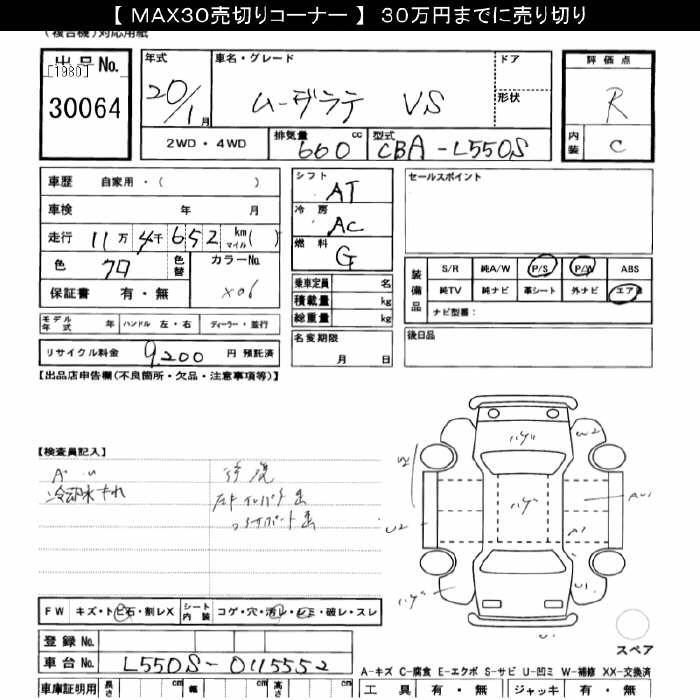 【 MAX30売切りコーナー 】 30万円までに売り切り
(複合機)対応用紙
出品No.
[1980]
30064
年式
20/1月
車名・グレード
ムーヴラテ VS
ドア
形状
評価点
R
内装 C
2WD・4WD
排気量 660 cc
型式 CBA-L550S
車歴 自家用・( )
車検 年 月
走行 11万 4千 652 km マイル ( )
色 クロ 色替
カラーNo. X06
保証書 有・無
モデル年式 年 ハンドル 左・右 ディーラー・並行
リサイクル料金 9,200 円 預託済
シフト AT
冷房 AC
燃料 G
乗車定員 名
積載量 kg
総重量 kg
名変期限
月 日
セールスポイント
装備品
S/R 純A/W P/S P/W ABS
純TV 純ナビ 革シート 外ナビ エアB
ナビ型番:
後日品
【出品店申告欄(不良箇所・欠品・注意事項等)】
【検査員記入】
冷却水もれ
修復
ハゲ
U2
W2
ハゲ
AU1
U2
A1
U1
ハゲ
U1
FW キズ・トビ石・割レX
シート内装 コゲ・穴・汚レ・シミ・破レ・スレ
スペア
登録No.
車台No. L550S-0115552
A-キズ C-腐食 E-エクボ S-サビ U-凹ミ W-補修 XX-交換済
車庫証明用 長さ cm 幅 cm 高さ cm
工具 有・無 ジャッキ 有・無